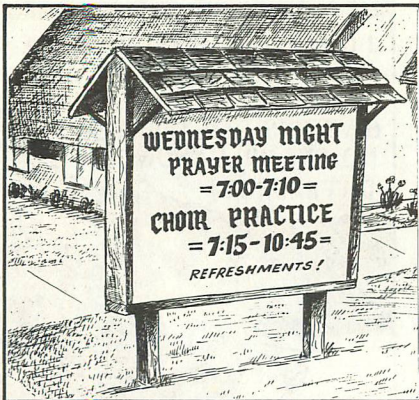 WEDNESDAY NIGHT
PRAYER MEETING
= 7:00-7:10 =
CHOIR PRACTICE
= 7:15-10:45 =
REFRESHMENTS!